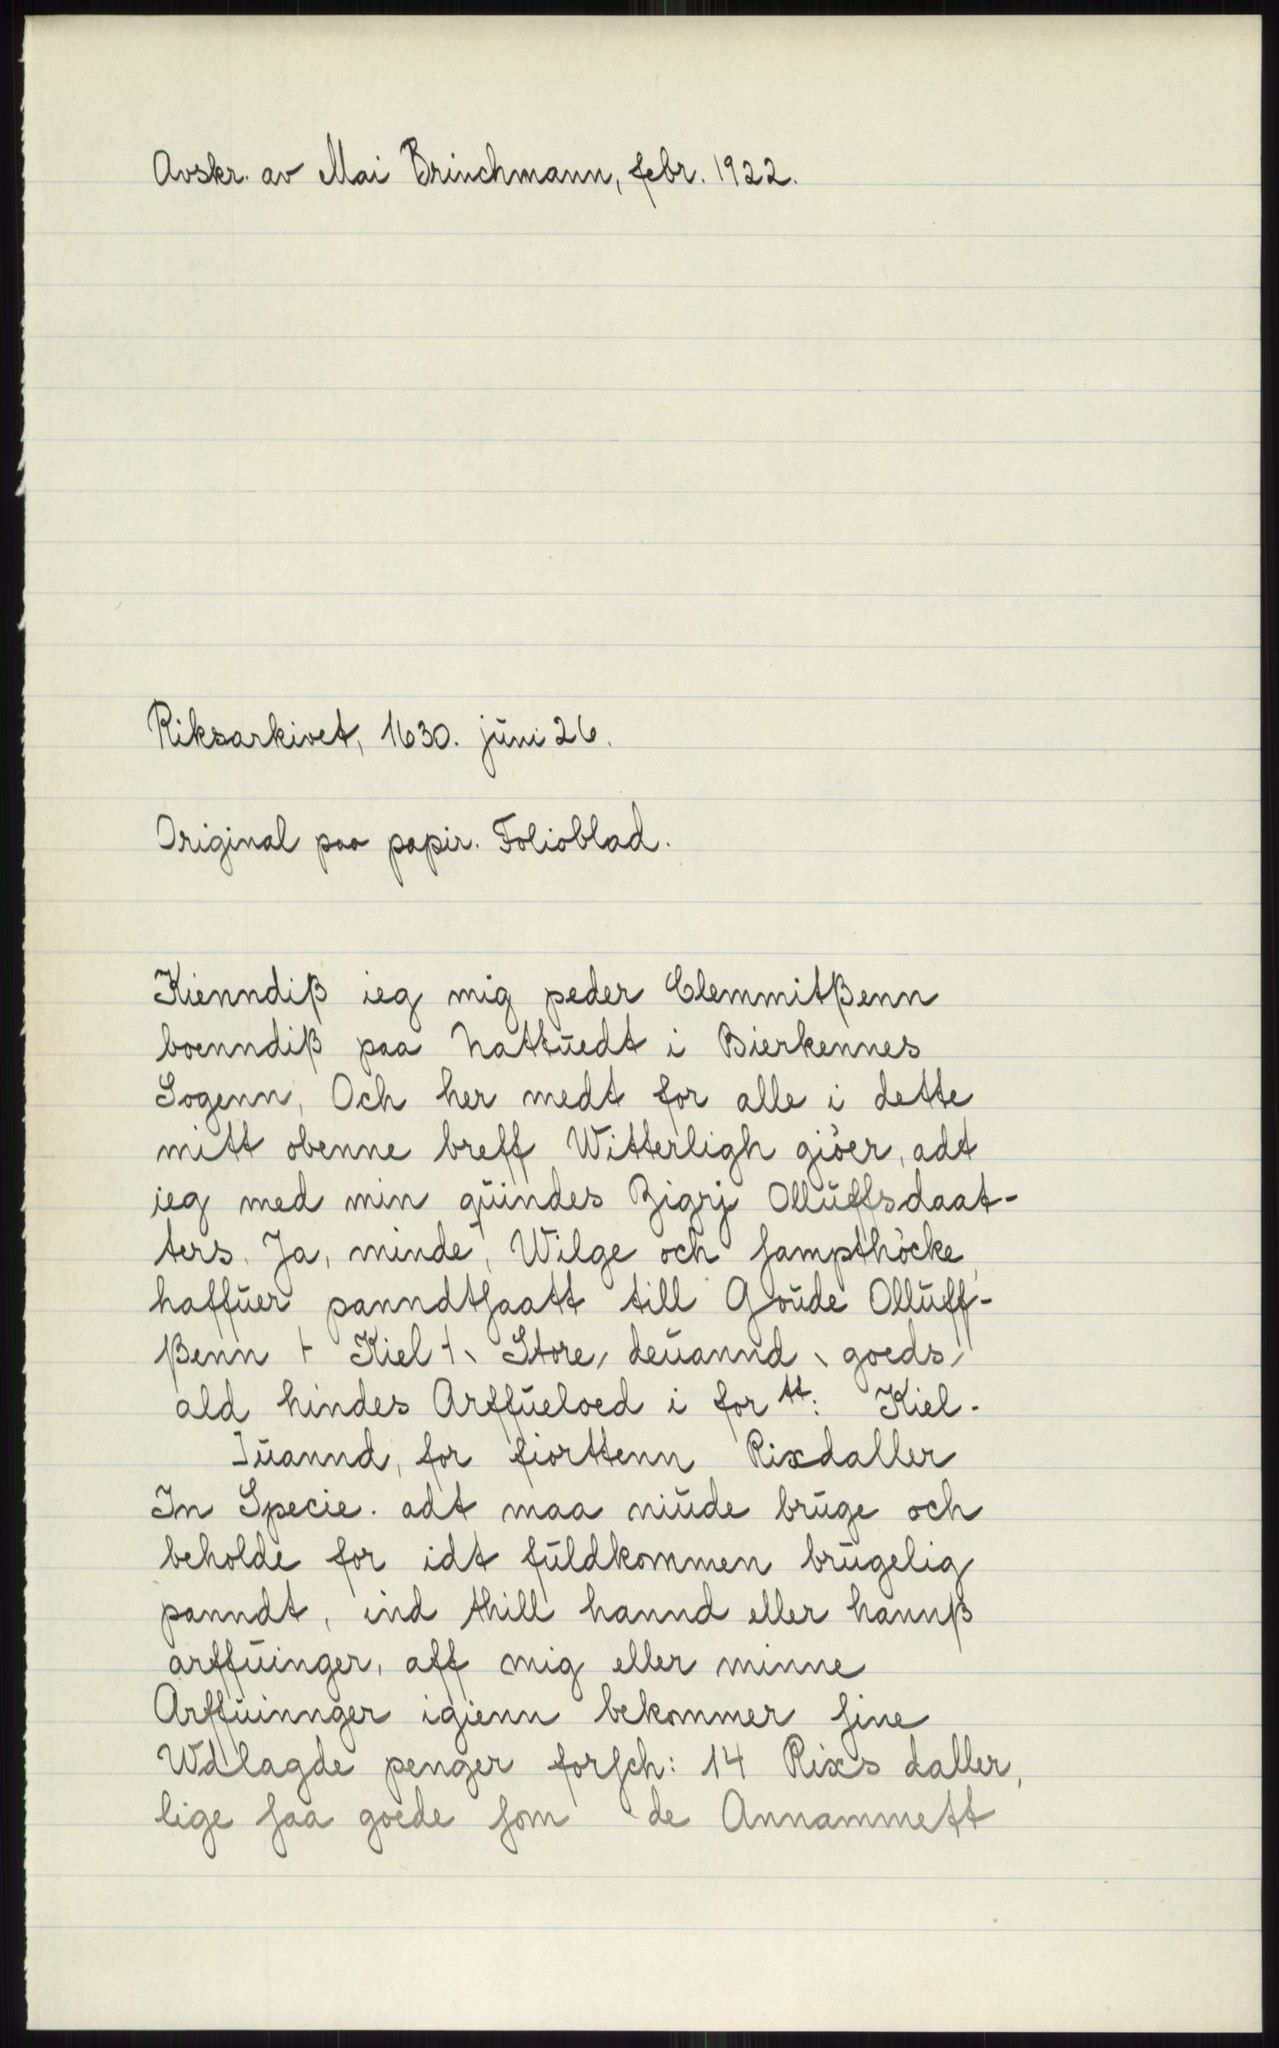 Avskr. av Mai Brinchmann, febr. 1922.
Riksarkivet, 1630. juni 26.
Original paa papir. Folioblad.
Kienndiß ieg mig peder Clemmitßenn
boenndiß paa hattuedt i Bierkennes
Sogenn, Och her medt for alle i dette
mitt obenne breff Witterligh giöer, adt
ieg med min quindes Zigrj Olluffsdaat-
ters. Ja, minde, Wilge och sampthöcke,
haffuer panndtsaatt till Goude Olluff-
ßenn i Kiel i Store, deuannd, goeds,
ald hindes Arffueloed i for tt: Kiel.
Juannd, for fiorttenn Rixdaller
In Specie. adt maa niude bruge och
beholde for idt fuldkommen brugelig
panndt, ind thill hannd eller hannß
arffuinger, aff mig eller minne
Arffuinnger igienn bekommer sine
Wdlagde penger forsch: 14 Rixs daller,
lige saa goede som de Annammett